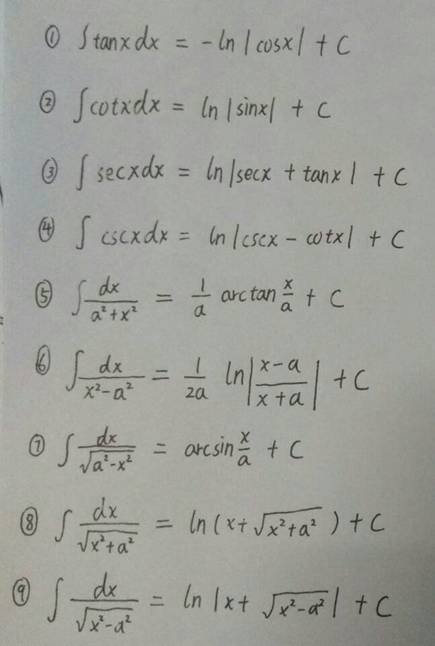 ① ∫ tanx dx = -ln |cosx| + C
② ∫ cotx dx = ln |sinx| + C
③ ∫ secx dx = ln |secx + tanx| + C
④ ∫ cscx dx = ln |cscx - cotx| + C
⑤ ∫ dx/(a²+x²) = 1/a arctan x/a + C
⑥ ∫ dx/(x²-a²) = 1/2a ln |(x-a)/(x+a)| + C
⑦ ∫ dx/√(a²-x²) = arcsin x/a + C
⑧ ∫ dx/√(x²+a²) = ln (x+√(x²+a²)) + C
⑨ ∫ dx/√(x²-a²) = ln |x+√(x²-a²)| + C